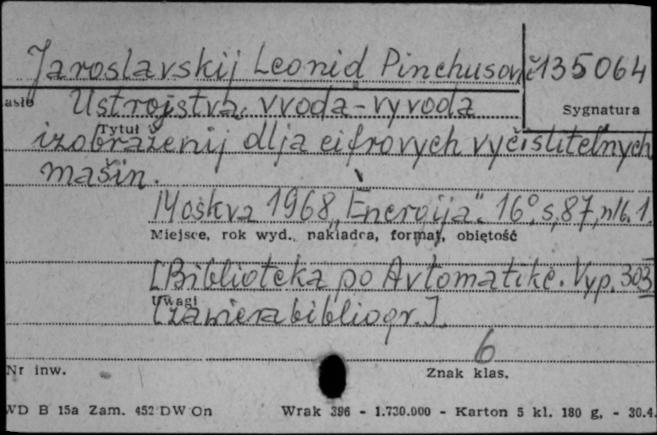 Jaroslavskij Leonid Pinchusovič 135064
Ustrojstva vvoda-vyvoda
Sygnatura
Tytuł
izobraženij dlja cifrovych vyčislitel'nych
mašin.
Moskva 1968 "Energija". 16°, s. 87, nlb. 1.
Miejsce, rok wyd., nakładca, format, objętość
[Biblioteka po Avtomatike. Vyp. 303
Uwagi
[zawiera bibliogr.].
6
Nr inw.
Znak klas.
WD B 15a Zam. 452 DW On Wrak 396 - 1.730.000 - Karton 5 kl. 180 g. - 30.4.